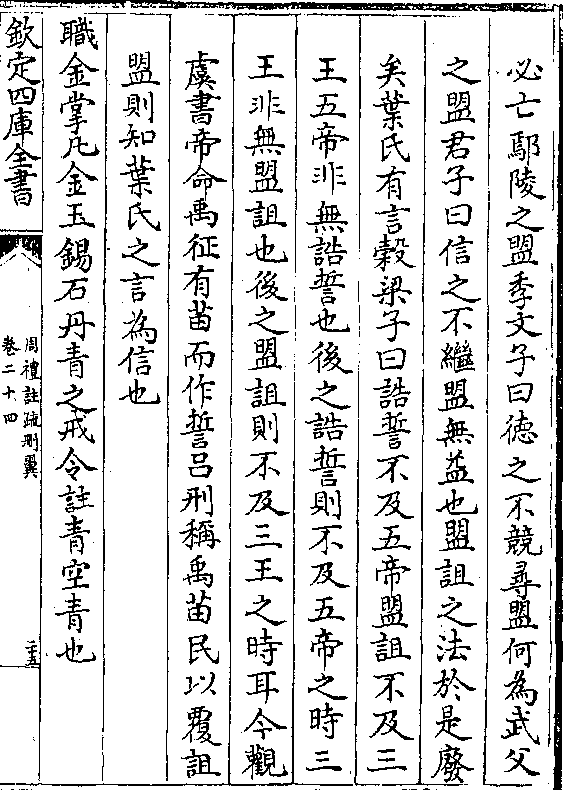 必亡鄢陵之盟季文子曰徳之不競尋盟何為武父
之盟君子曰信之不繼盟無益也盟詛之法於是廢
矣葉氏有言榖梁子曰誥誓不及五帝盟詛不及三
王五帝非無誥誓也後之誥誓則不及五帝之時三
王非無盟詛也後之盟詛則不及三王之時耳今觀
虞書帝命禹征有苗而作誓吕刑稱禹苗民以覆詛
盟則知葉氏之言為信也
職金掌凡金玉錫石丹青之戒令註青空青也
欽定四庫全書
周禮註疏刪翼
卷二十四
二五